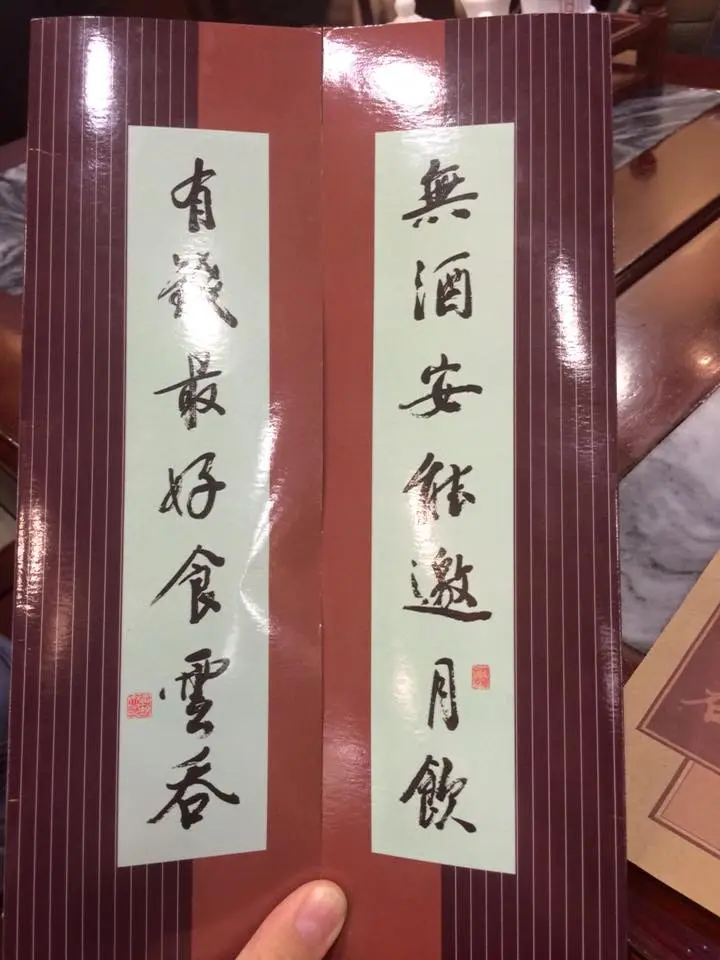 無酒安能邀月飲
有錢最好食雲吞